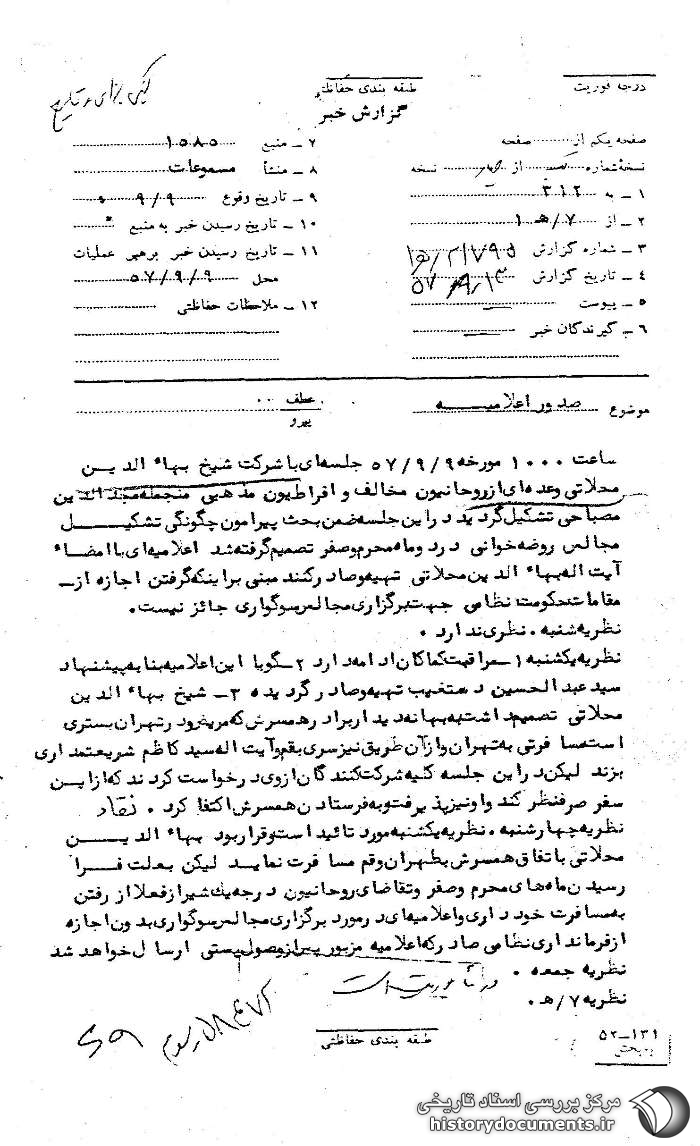 درجه فوریت
طبقه بندی حفاظتی
گزارش خبر
صفحه یکم از صفحه
نسخه شماره از نسخه
۱ – به ۳۱۲
۲ – از ۷/هـ ۱
۳ – شماره گزارش
۴ – تاریخ گزارش ۵۷
۵ – پیوست
۶ – گیرندگان خبر
۷ – منبع ۱۵۸۵
۸ – منشأ مسموعات
۹ – تاریخ وقوع ۹/۹
۱۰ – تاریخ رسیدن خبر به منبع
۱۱ – تاریخ رسیدن خبر برهبر عملیات
محل ۵۷/۹/۹
۱۲ – ملاحظات حفاظتی
موضوع صدور اعلامیه
عطف
پیرو
ساعت ۱۰۰۰ مورخه ۵۷/۹/۹ جلسه‌ای با شرکت شیخ بهاء الدین
محلاتی وعده‌ای از روحانیون مخالف و افراطیون مذهبی منجمله مجدالدین
مصباحی تشکیل گردید در این جلسه ضمن بحث پیرامون چگونگی تشکیل
مجالس روضه خوانی در دو ماه محرم و صفر تصمیم گرفته شد اعلامیه‌ای با امضاء
آیت اله بهاء الدین محلاتی تهیه و صادر کنند مبنی بر اینکه گرفتن اجازه از –
مقامات حکومت نظامی جهت برگزاری مجالس سوگواری جائز نیست.
نظریه شنبه. نظری ندارد.
نظریه یکشنبه ۱ – مراقبت کماکان ادامه دارد ۲ – گویا این اعلامیه بنا به پیشنهاد
سید عبدالحسین دستغیب تهیه و صادر گردیده ۳ – شیخ بهاء الدین
محلاتی تصمیم داشته به بهانه دیدار برادر همسرش که مریض و در تهران بستری
است مسافرتی به تهران و از آن طریق نیز سری بقم و آیت اله سید کاظم شریعتمداری
بزند لیکن در این جلسه کلیه شرکت کنندگان از وی درخواست کردند که از این
سفر صرفنظر کند و او نیز پذیرفت و به فرستادن همسرش اکتفا کرد.
نظریه چهارشنبه. نظریه یکشنبه مورد تائید است و قرار بود بهاء الدین
محلاتی با تفاق همسرش بطهران و قم مسافرت نماید لیکن بعلت فرا
رسیدن ماه‌های محرم و صفر و تقاضای روحانیون درجه یک شیراز فعلا از رفتن
به مسافرت خودداری و اعلامیه‌ای در مورد برگزاری مجالس سوگواری بدون اجازه
از فرمانداری نظامی صادر که اعلامیه مزبور پس از وصول پستی ارسال خواهد شد
نظریه جمعه.
نظریه ۷/هـ.
طبقه بندی حفاظتی
۵۲–۱۳۱
مرکز بررسی اسناد تاریخی
historydocuments.ir